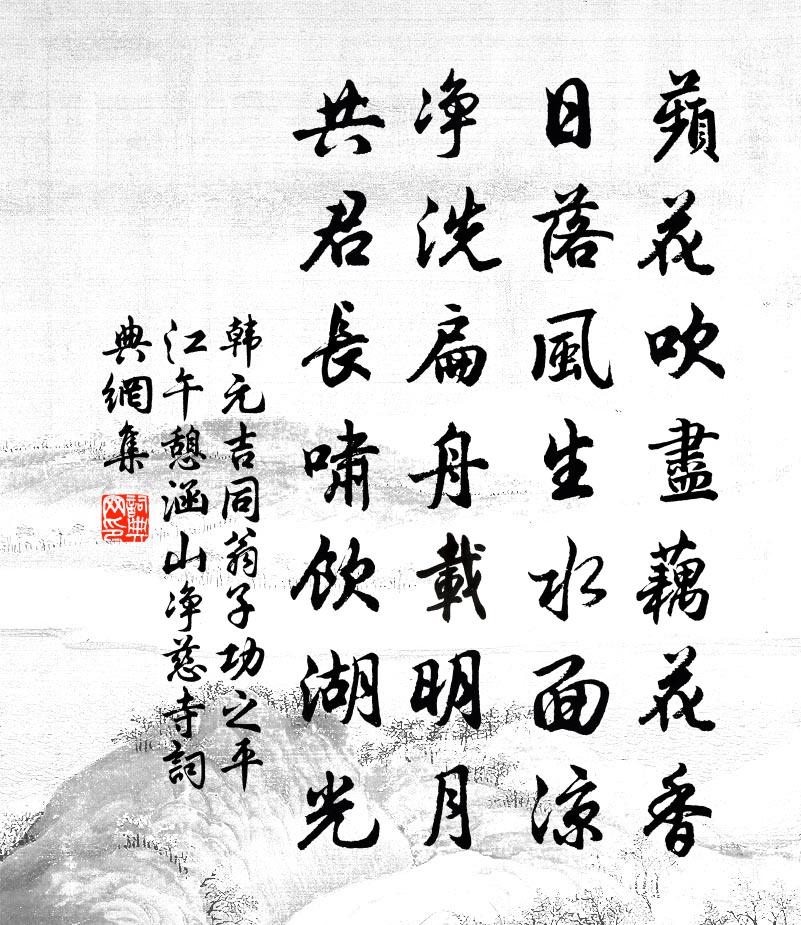 蘋花吹盡藕花香
日落風生水面涼
净洗扁舟載明月
共君長嘯飲湖光
韩元吉同翁子功之平
江午憩涵山净慈寺詞
典網集
詞典
网印